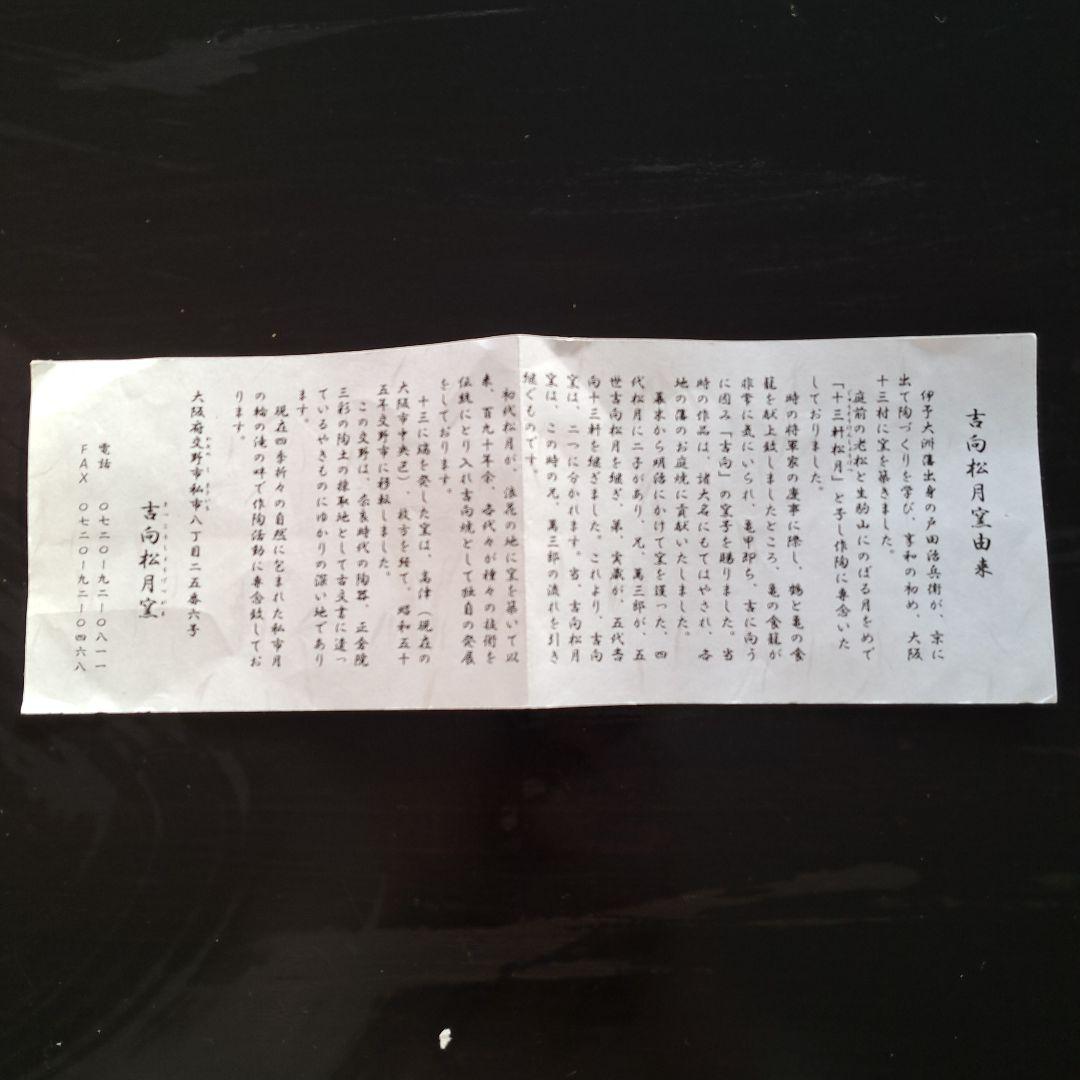 吉向松月窯由来
伊予大洲藩出身の戸田治兵衛が、京に
出て陶づくりを学び、享和の初め、大阪
十三村に窯を築きました。
庭前の老松と生駒山にのぼる月をめで
「十三軒松月」と号し作陶に専念いた
しておりました。
時の将軍家の慶事に際し、鶴と亀の食
籠を献上致しましたところ、亀の食籠が
非常に気にいられ、亀甲即ち、吉に向う
に因み「吉向」の窯号を賜りました。当
時の作品は、諸大名にもてはやされ、各
地の藩のお庭焼に貢献いたしました。
幕末から明治にかけて窯を護った、四
代松月に二子があり、兄、萬三郎が、五
世吉向松月を継ぎ、弟、實蔵が、五代吉
向十三軒を継ぎました。これより、吉向
窯は、二つに分かれます。当、吉向松月
窯は、この時の兄、萬三郎の流れを引き
継ぐものです。
初代松月が、浪花の地に窯を築いて以
来、百九十年余、各代々が種々の技術を
伝統にとり入れ吉向焼として独自の発展
をしております。
十三に端を発した窯は、高津（現在の
大阪市中央区）、枚方を経て、昭和五十
五年交野市に移転しました。
この交野は、奈良時代の陶器、正倉院
三彩の陶土の採取地として古文書に遺っ
ているやきものにゆかりの深い地であり
ます。
現在四季折々の自然に包まれた私市月
の輪の滝の畔で作陶活動に専念致してお
ります。
大阪府交野市私市八丁目二五番六号
吉向松月窯
電話 〇七二〇-九二-〇八一一
FAX 〇七二〇-九二-〇四六八